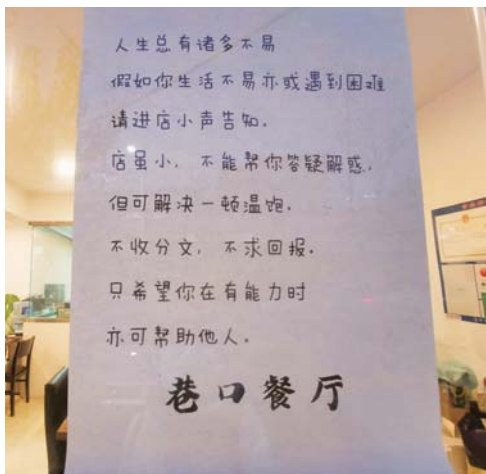 人生总有诸多不易
假如你生活不易亦或遇到困难
请进店小声告知.
店虽小, 不能帮你答疑解惑,
但可解决一顿温饱.
不收分文, 不求回报.
只希望你在有能力时
亦可帮助他人.
巷口餐厅